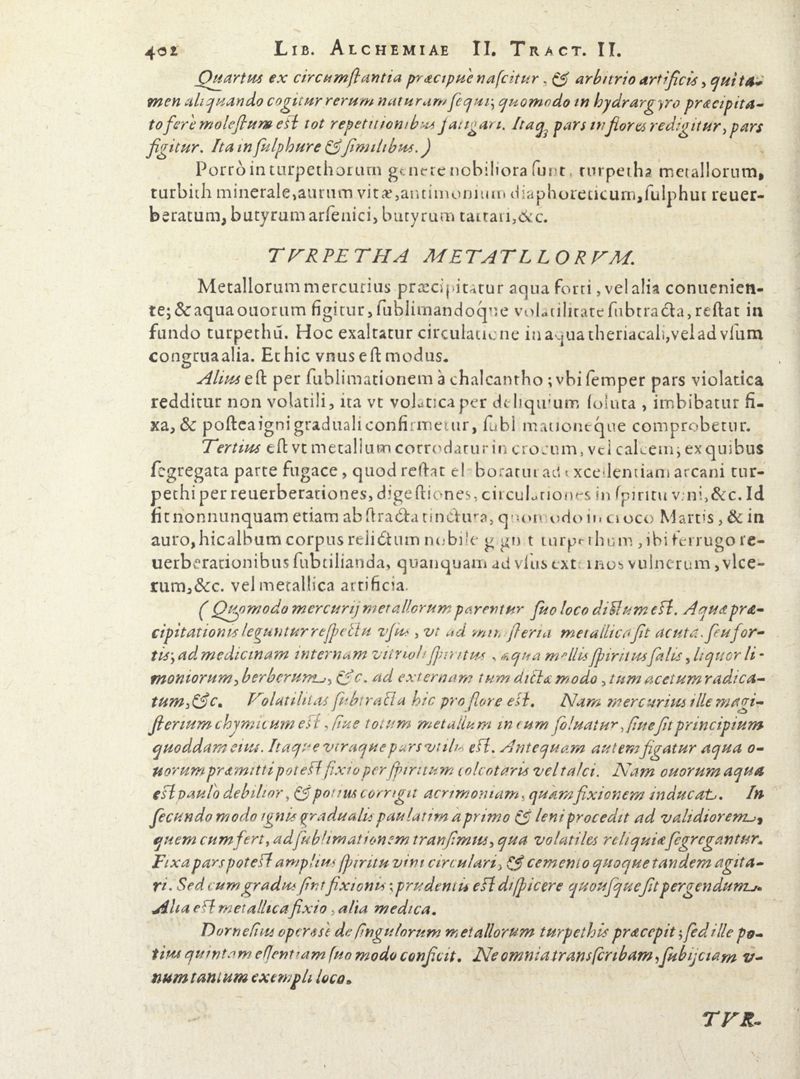 402 LIB. ALCHEMIAE II. TRACT. II.
Quartus ex circumſtantia præcipuè naſcitur, & arbitrio artificis, qui ta-
men aliquando cogitur rerum naturam ſequi; quomodo in hydrargyro præcipita-
to ferè moleſtum est tot repetitionibus fatigari. Itaq; pars in flores redigitur, pars
figitur. Ita in ſulphure & ſimilibus.)
Porrò in turpethorum genere nobiliora ſunt, turpetha metallorum,
turbith minerale, aurum vitæ, antimonium diaphoreticum, ſulphur reuer-
beratum, butyrum arſenici, butyrum tartari, &c.
TVRPETHA METATLLORVM.
Metallorum mercurius præcipitatur aqua forti, vel alia conuenien-
te; & aqua ouorum figitur, ſublimandoque volatilitate ſubtracta, reſtat in
fundo turpethū. Hoc exaltatur circulatione in aqua theriacali, vel ad vſum
congrua alia. Et hic vnus eſt modus.
Alius eſt per ſublimationem à chalcantho; vbi ſemper pars violatica
redditur non volatili, ita vt volatica per deliquium ſoluta, imbibatur fi-
xa, & poſtea igni graduali confirmetur, ſublimationeque comprobetur.
Tertius eſt vt metallum corrodatur in crocum, vel calcem; ex quibus
ſegregata parte fugace, quod reſtat elaboratur ad excellentiam arcani tur-
pethi per reuerberationes, digeſtiones, circulationes in ſpiritu vini, &c. Id
fit nonnunquam etiam abſtracta tinctura, quomodo in croco Martis, & in
auro, hic album corpus relictum nobile gignit turpethum, ibi ferrugo re-
uerberationibus ſubtilianda, quanquam ad vſus externos vulnerum, vlce-
rum, &c. vel metallica artificia.
( Quomodo mercurij metallorum parentur ſuo loco dictum est. Aquæ præ-
cipitationis leguntur reſpectu vſus, vt ad miniſteria metallica ſit acuta, ſeu for-
tis; ad medicinam internam vitrioli ſpiritus, aqua mellis ſpiritus ſalis, liquor li-
moniorum, berberum, &c. ad externam tum dicta modo, tum acetum radica-
tum, &c. Volatilitas ſubtracta hic pro flore est. Nam mercurius ille magi-
ſterium chymicum est, ſiue totum metallum in eum ſoluatur, ſiue ſit principium
quoddam eius. Itaque vtraque pars vtilis est. Antequam autem figatur aqua o-
uorum præmitti potest fixio per ſpiritum colcotaris vel talci. Nam ouorum aqua
est paulò debilior, & potius corrigit acrimoniam, quàm fixionem inducat. In
ſecundo modo ignis gradualis paulatim à primo & leni procedit ad validiorem,
quem cum fert, ad ſublimationem tranſimus, qua volatiles reliquiæ ſegregantur.
Fixa pars potest amplius ſpiritu vini circulari, & cemento quoque tandem agita-
ri. Sed cum gradus ſint fixionis; prudentis est diſpicere quouſque ſit pergendum.
Alia est metallica fixio, alia medica.
Dorneſius operosè de ſingulorum metallorum turpethis præcepit; ſed ille po-
tius quintam eſſentiam ſuo modo conficit. Ne omnia transſcribam, ſubijciam v-
num tantum exempli loco.
TVR-